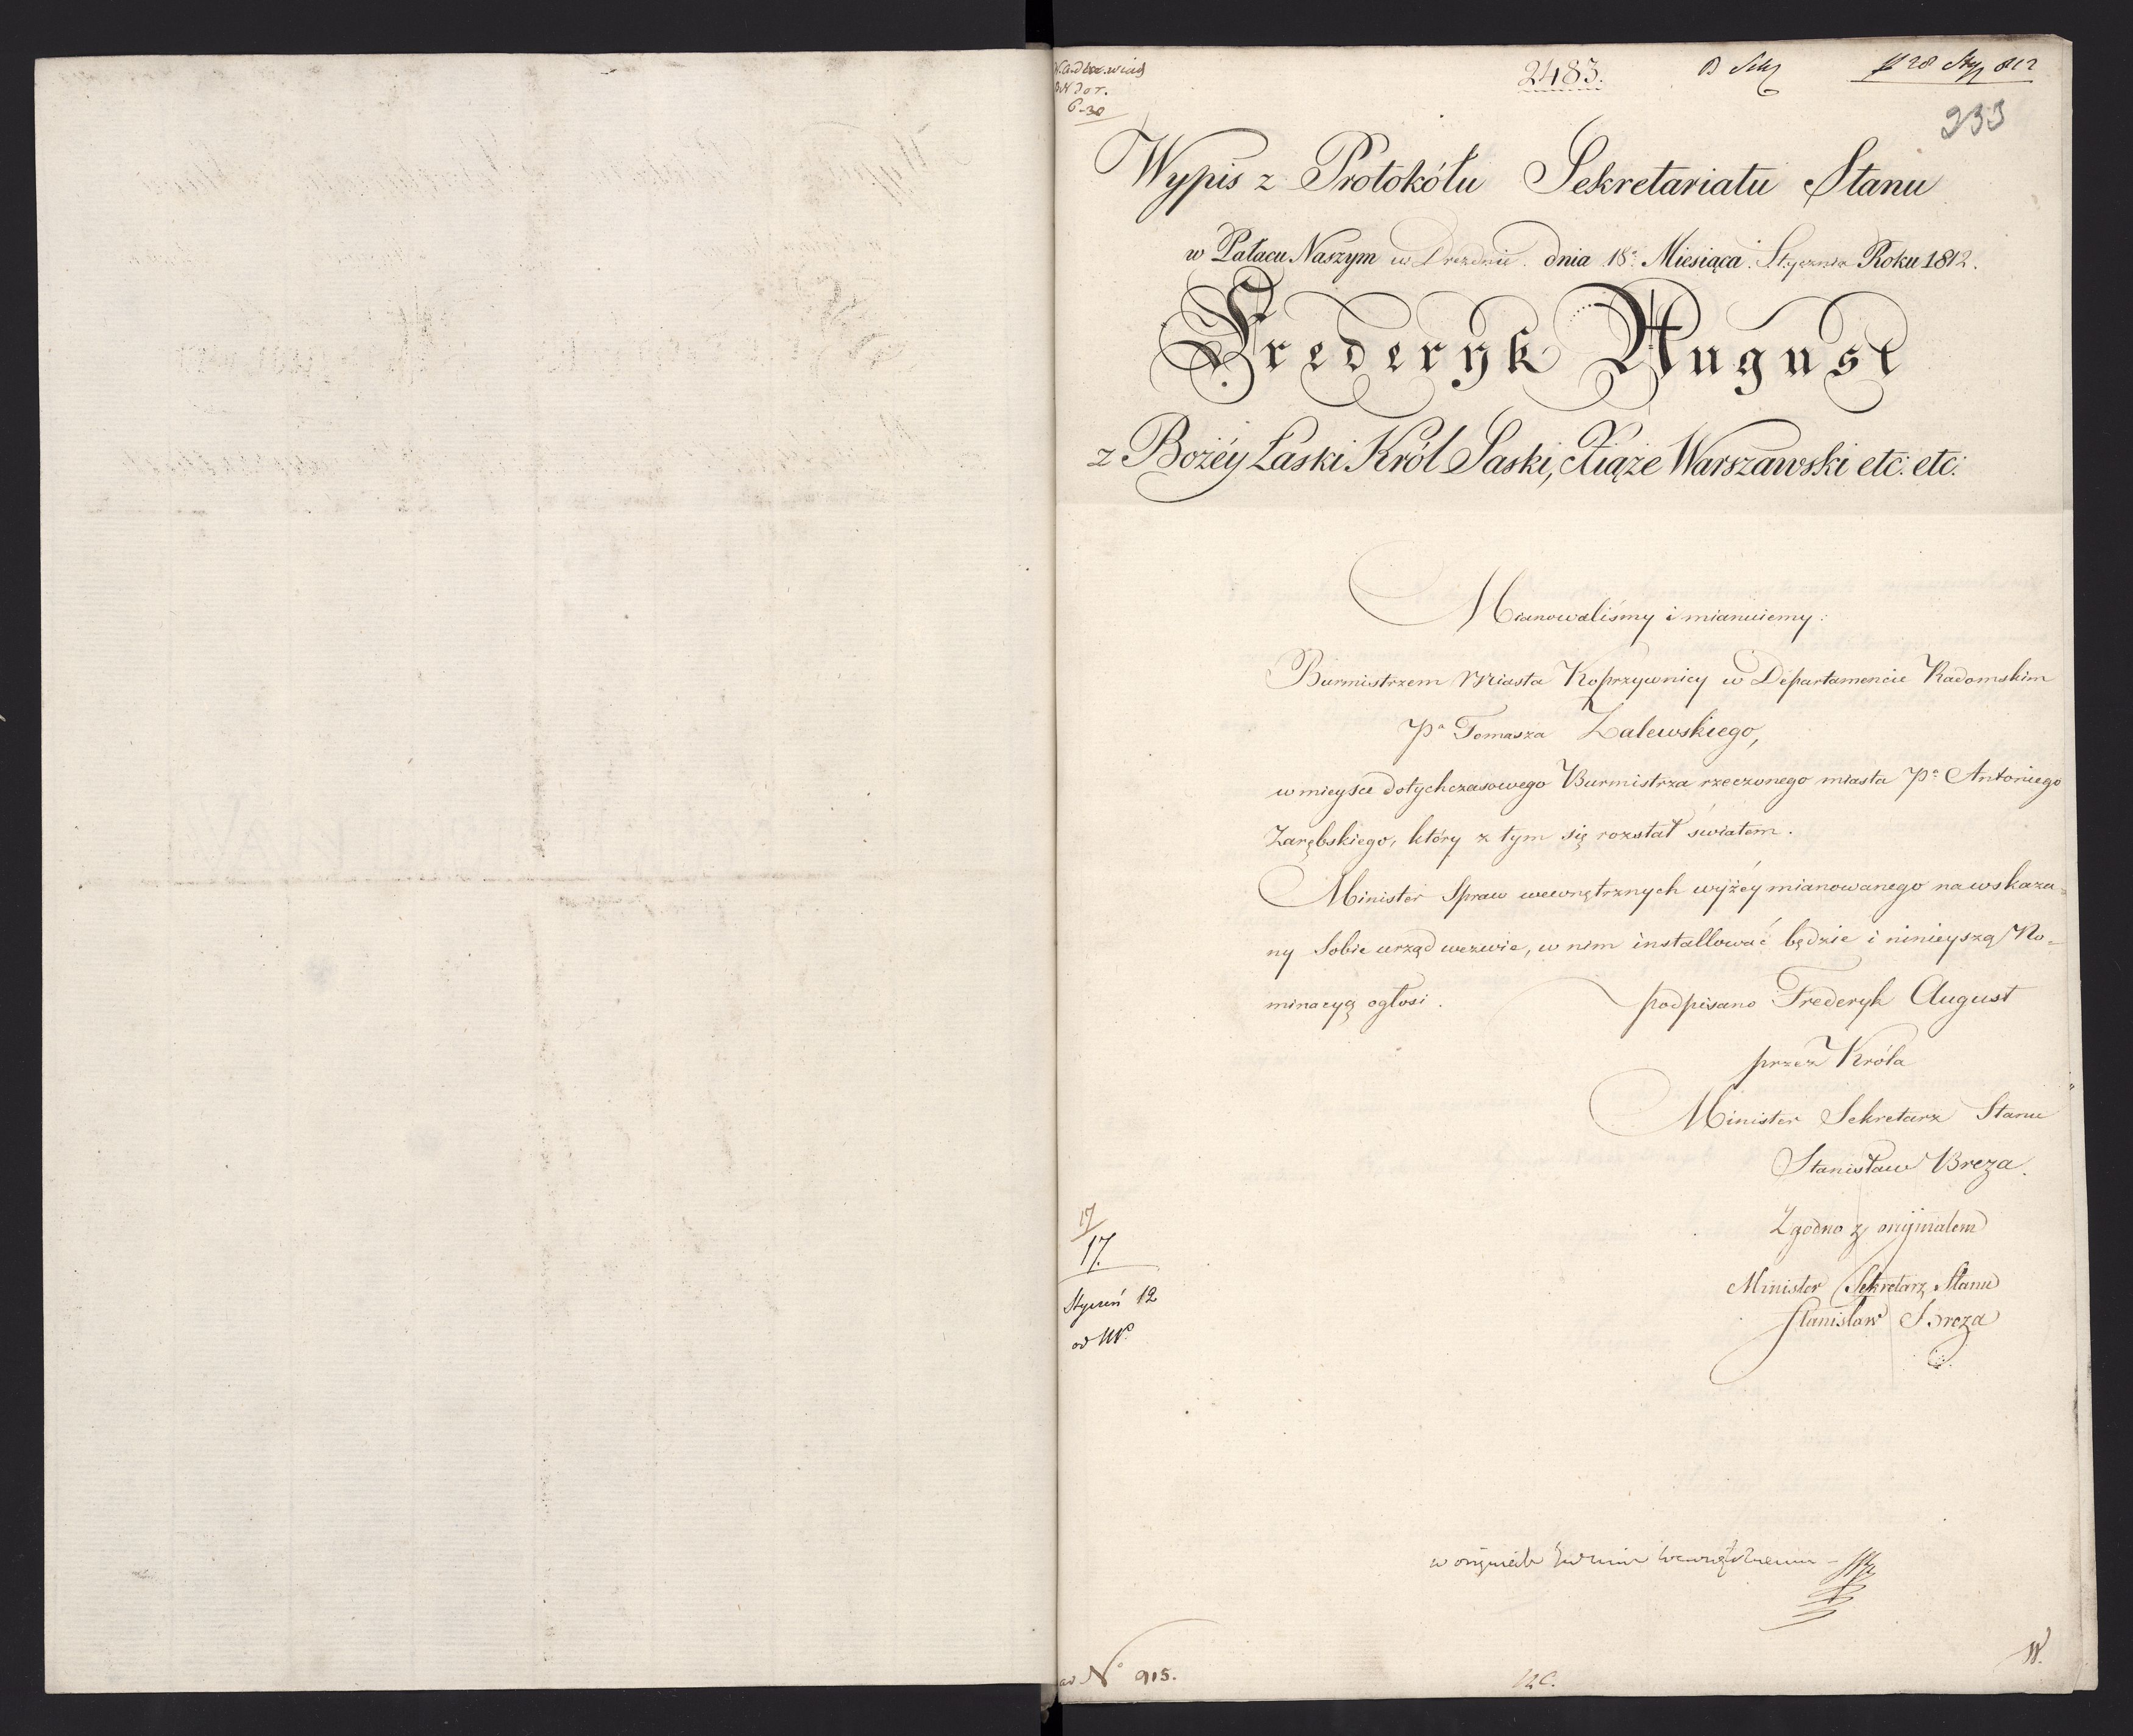 2483.
233
Wypis z Protokółu Sekretariatu Stanu
w Pałacu Naszym w Dreźnie dnia 18º Miesiąca Stycznia Roku 1812.
Frederyk August
z Bożéy Łaski Król Saski, Xiąże Warszawski etc: etc:
Mianowaliśmy i mianuiemy:
Burmistrzem Miasta Koprzywnicy w Departamencie Radomskim
Pª Tomasza Zalewskiego,
w mieysce dotychczasowego Burmistrza rzeczonego miasta Pª Antoniego
Zarębskiego, który z tym się rozstał światem.
Minister Spraw wewnętrznych wyżéy mianowanego na wskaza=
ny Sobie urząd wezwie, w nim installować będzie i ninieyszą No=
minacyą ogłosi.
podpisano Frederyk August
przez Króla
Minister Sekretarz Stanu
Stanisław Breza.
Zgodno z oryinałem
Minister Sekretarz Stanu
Stanisław Breza
17
17.
Styczeń 12
w oryginale
ad Nº 915.
W.